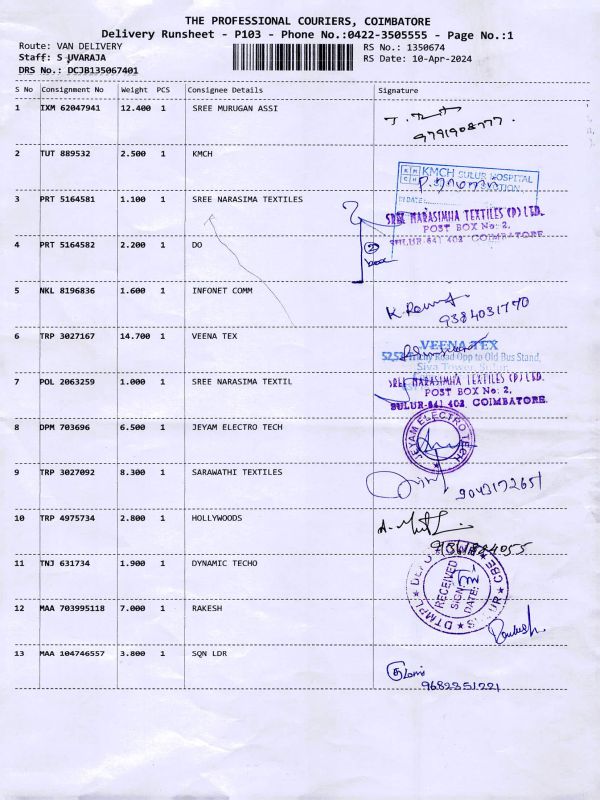 THE PROFESSIONAL COURIERS, COIMBATORE
Delivery Runsheet - P103 - Phone No.:0422-3505555 - Page No.:1
Route: VAN DELIVERY RS No.: 1350674
Staff: S UVARAJA RS Date: 10-Apr-2024
DRS No.: DCJB135067401
S No Consignment No Weight PCS Consignee Details Signature
1 IXM 62047941 12.400 1 SREE MURUGAN ASSI
9791908777.
2 TUT 889532 2.500 1 KMCH
KMCH SULUR HOSPITAL
DATE:
3 PRT 5164581 1.100 1 SREE NARASIMA TEXTILES
SREE NARASIMHA TEXTILES (P) LTD.
POST BOX No: 2,
SULUR-641 402 COIMBATORE.
4 PRT 5164582 2.200 1 DO
2
box
5 NKL 8196836 1.600 1 INFONET COMM
9384031770
6 TRP 3027167 14.700 1 VEENA TEX
VEENA TEX
Road Opp to Old Bus Stand,
Siva Tower, Sulur
7 POL 2063259 1.000 1 SREE NARASIMA TEXTIL
SREE NARASIMHA TEXTILES (P) LTD.
POST BOX No: 2,
SULUR-641 402, COIMBATORE.
8 DPM 703696 6.500 1 JEYAM ELECTRO TECH
JEYAM ELECTRO TECH
9 TRP 3027092 8.300 1 SARAWATHI TEXTILES
9043172651
10 TRP 4975734 2.800 1 HOLLYWOODS
11 TNJ 631734 1.900 1 DYNAMIC TECHO
DTMPL
RECEIVED
SIGN:
DATE:
CBE
12 MAA 703995118 7.000 1 RAKESH
13 MAA 104746557 3.800 1 SQN LDR
9682351221